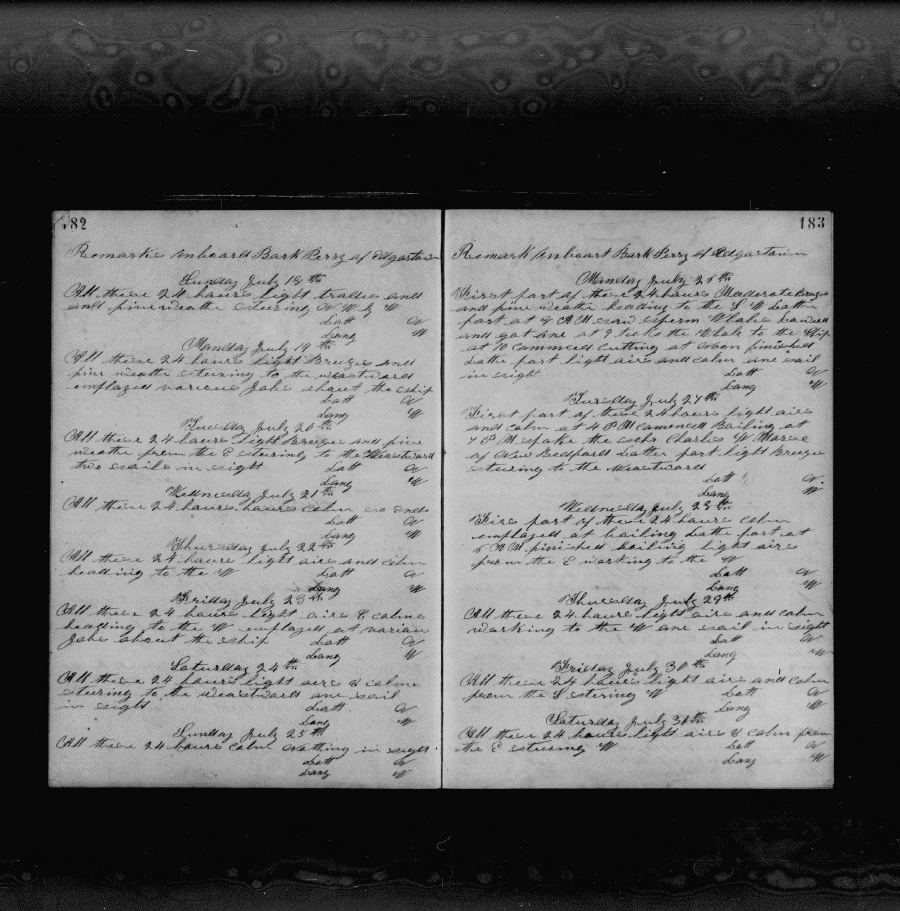 182
Remarks onboard Bark Perry of Edgartown
Sunday July 18th
All these 24 hours light trades and
and fine weather steering W W by W
Latt N
Long W
Monday July 19th
All these 24 hours light Breezes and
fine weather steering to the westward
employed various Jobs about the ship
Latt N
Long W
Tuesday July 20th
All these 24 hours light Breezes and fine
weather from the E stering to the Weastward
two sails in sight Latt N
Long W
Wednesday July 21th
All these 24 hours hours calm so ends
Latt N
Long W
Thursday July 22th
All these 24 hours light airs and calm
heading to the W Latt N
Long W
Friday July 23th
All these 24 hours light airs & calms
heading to the W employed at various
Jobs about the ship Latt N
Long W
Saturday 24th
All these 24 hours light airs & calms
stering to the weastward one sail
in sight Latt N
Long W
Sunday July 25th
All these 24 hours calm nothing in sight
Latt N
Long W
183
Remark onboart Bark Perry of Edgartown
Monday July 26th
First part of these 24 hours Moderate Breezes
and fine weather heading to the S W Latter
part at 8 AM saw sperm Whales Lowered
and got one at 9 took the Whale to the Ship
at 10 commenced cutting at Noon finished
Latter part light airs and calm one sail
in sight Latt N
Long W
Tuesday July 27th
First part of these 24 hours light airs
and calm at 4 PM comenced Boiling at
7 PM spoke the schr Charles W Morse
of New Bedford Latter part light Breezes
stering to the Weastward
Latt N
Long W
Wednesday July 28th
Firs part of these 24 hours calm
employed at boiling Latter part at
AM finished boiling light airs
from the E working to the W
Latt N
Long W
Thursday July 29th
All these 24 hours light airs and calm
working to the W one sail in sight
Latt N
Long W
Friday July 30th
All these 24 hours light airs and calm
from the S stering W Latt N
Long W
Saturday July 31th
All these 24 hours light airs & calm from
the E stering W Latt N
Long W